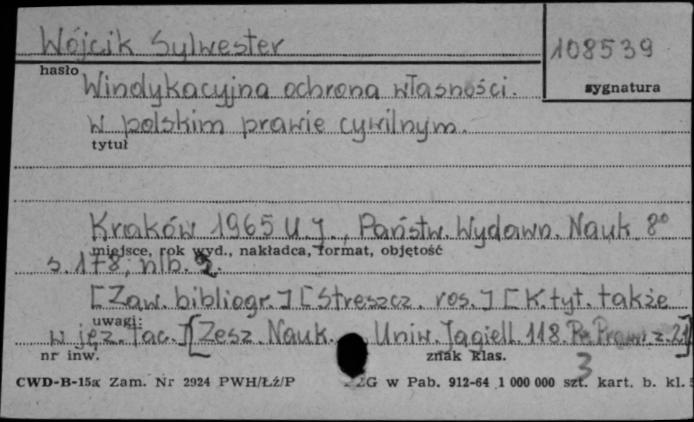 Wójcik Sylwester
108539
hasło
sygnatura
Windykacyjna ochrona własności.
w polskim prawie cywilnym.
tytuł
Kraków 1965 U.J., Państw. Wydawn. Nauk. 8°
miejsce, rok wyd., nakładca, format, objętość
s. 178, nlb. 2.
[Zaw. bibliogr.] [Streszcz. ros.] [K. tyt. także
uwagi:
w jęz. łac.] [Zesz. Nauk. Uniw. Jagiell. 118. Prawn. z. 21]
nr inw.
znak klas.
3
CWD-B-15a Zam. Nr 2924 PWH/Łź/P ZG w Pab. 912-64 1 000 000 szt. kart. b. kl.